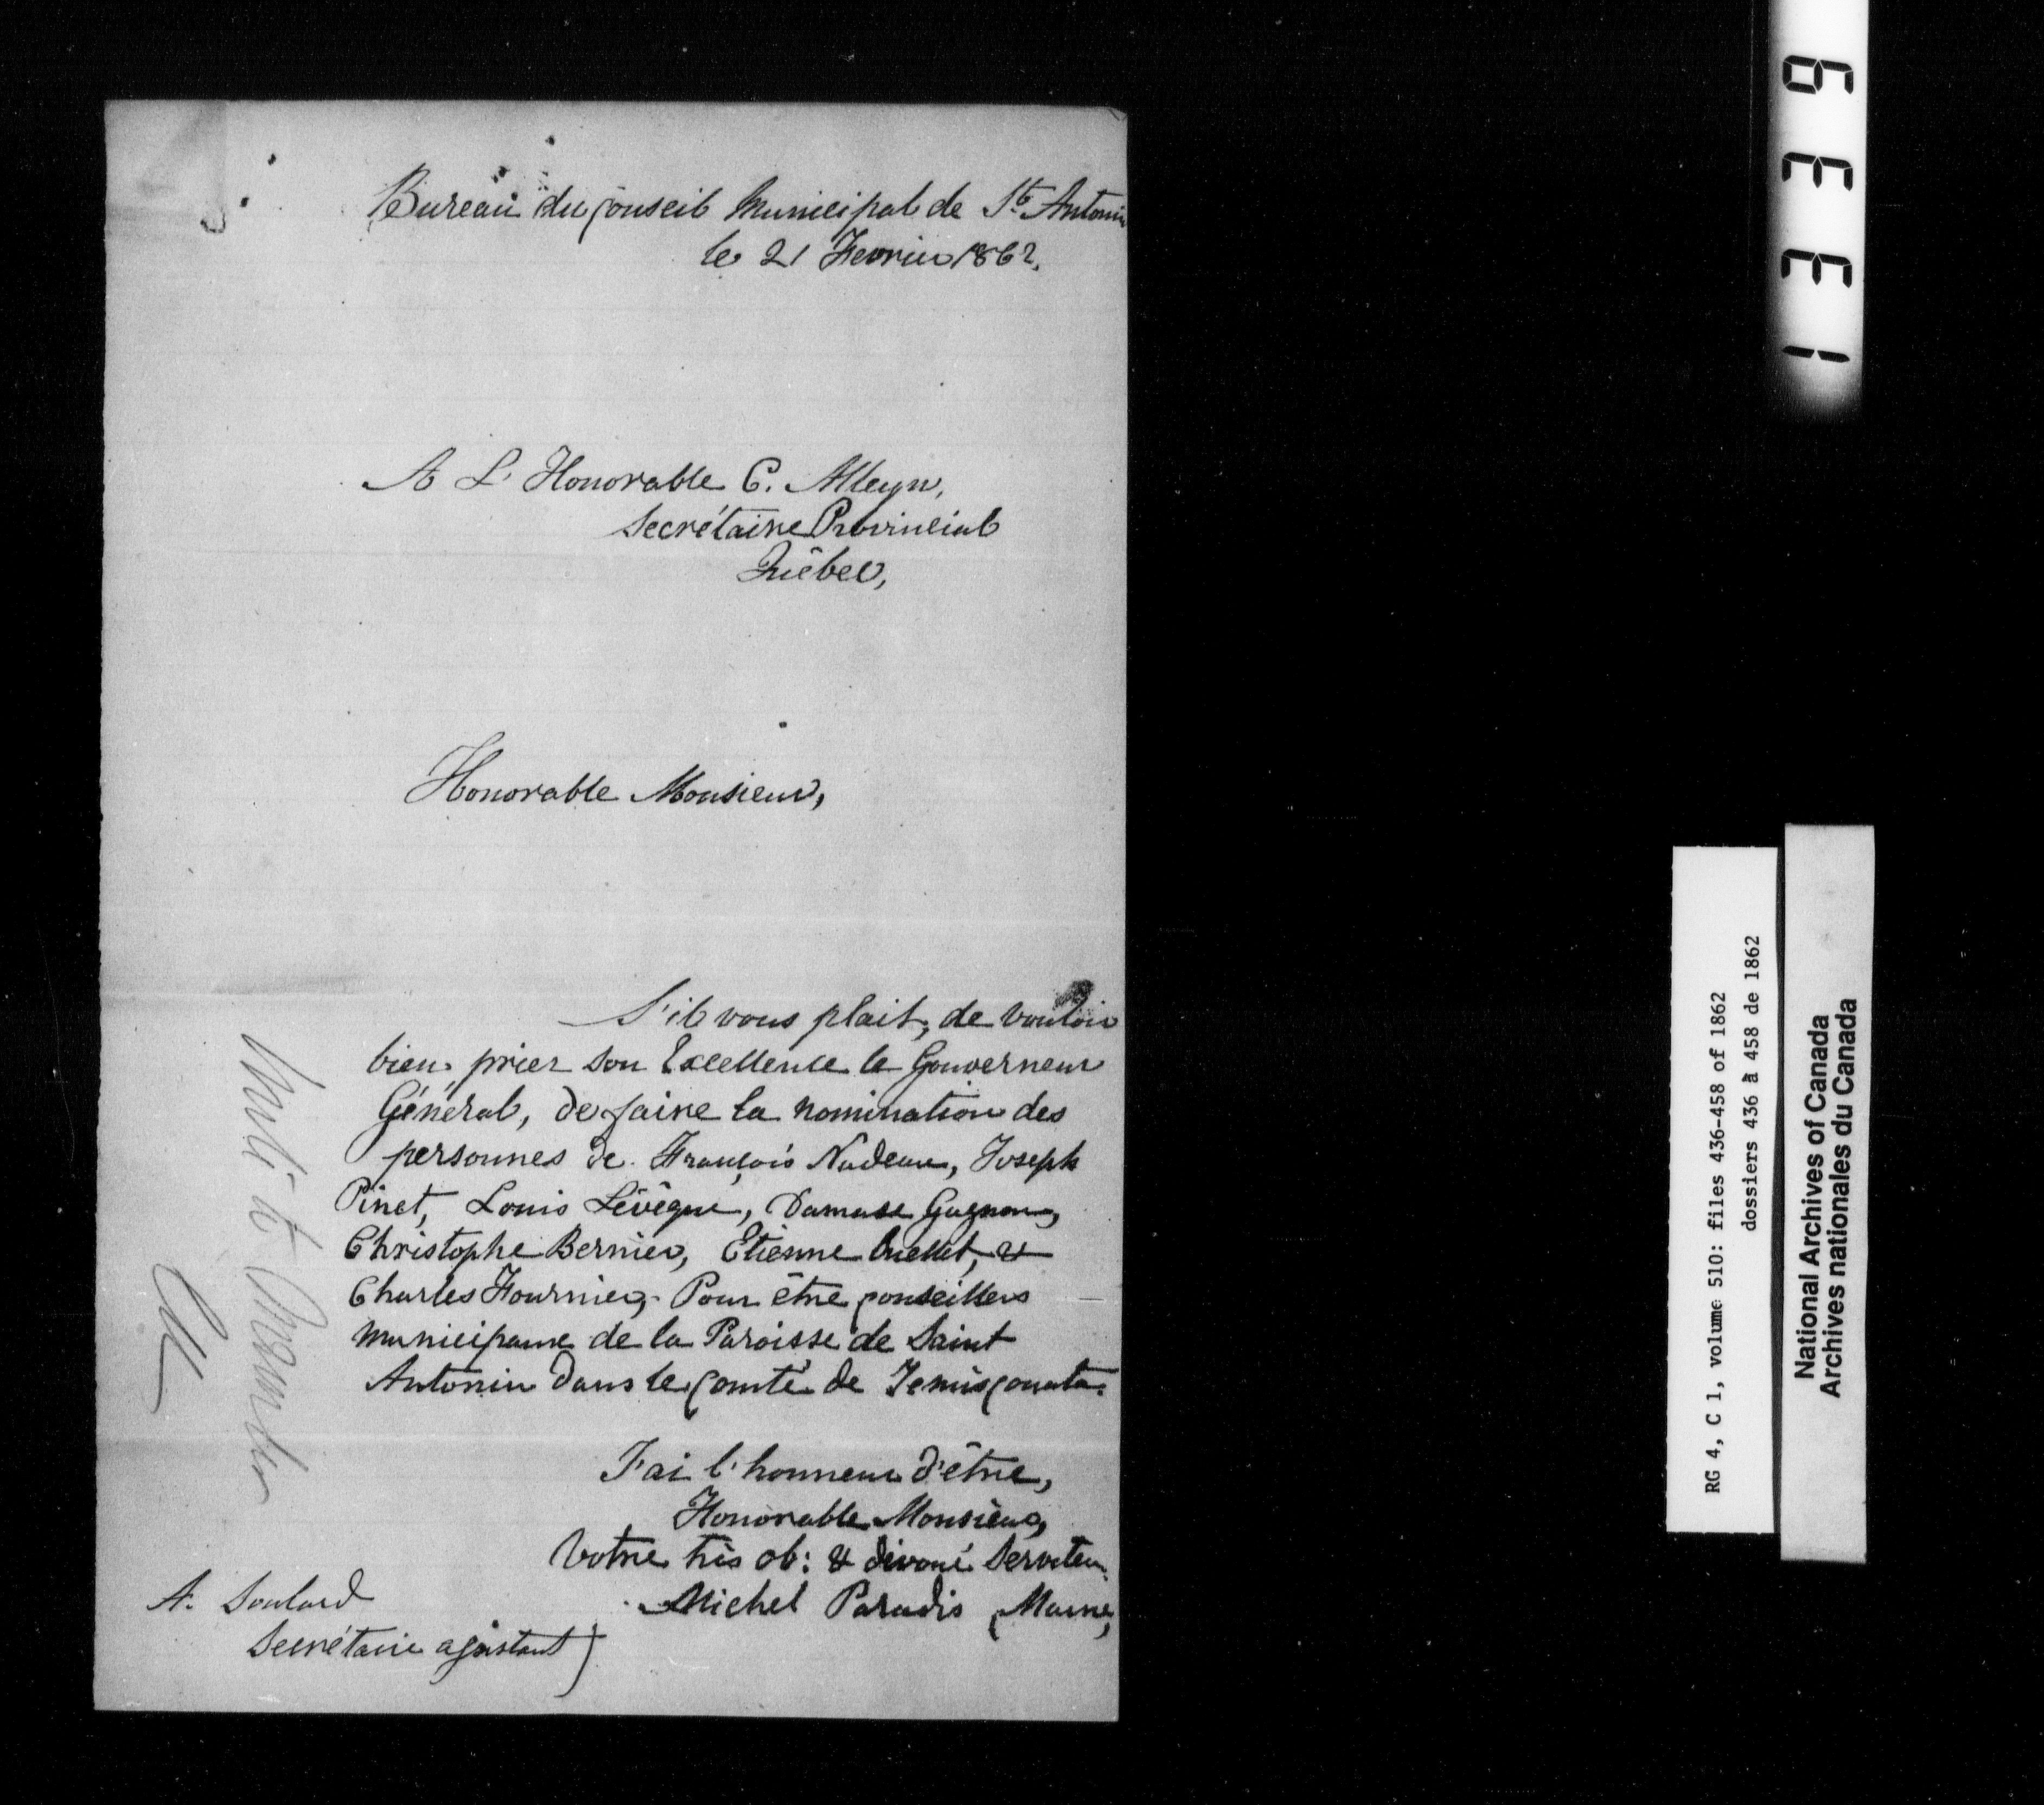 Bureau du Conseil Municipal de St. Antonin
le 21 Fevrier 1862.
A L'Honorable C. Alleyn,
Secrétaire Provincial
Québec,
Honorable Monsieur,
S'il vous plait, de vouloir
bien prier son Excellence le Gouverneur
Général, de faire la nomination des
personnes de François Nadeau, Joseph
Pinet, Louis Lévêque, Damase Gagnon,
Christophe Bernier, Etienne Ouellet, &
Charles Fournier, Pour être Conseillers
Municipaux de la Paroisse de Saint
Antonin dans le Comté de Temisconata.
J'ai l'honneur d'être,
Honorable Monsieur,
Votre très ob: & dévoué Serviteur
Michel Paradis Maire,
A. Soulard
Secrétaire assistant)
1339
RG 4, C 1, volume 510: files 436-458 of 1862
dossiers 436 à 458 de 1862
National Archives of Canada
Archives nationales du Canada